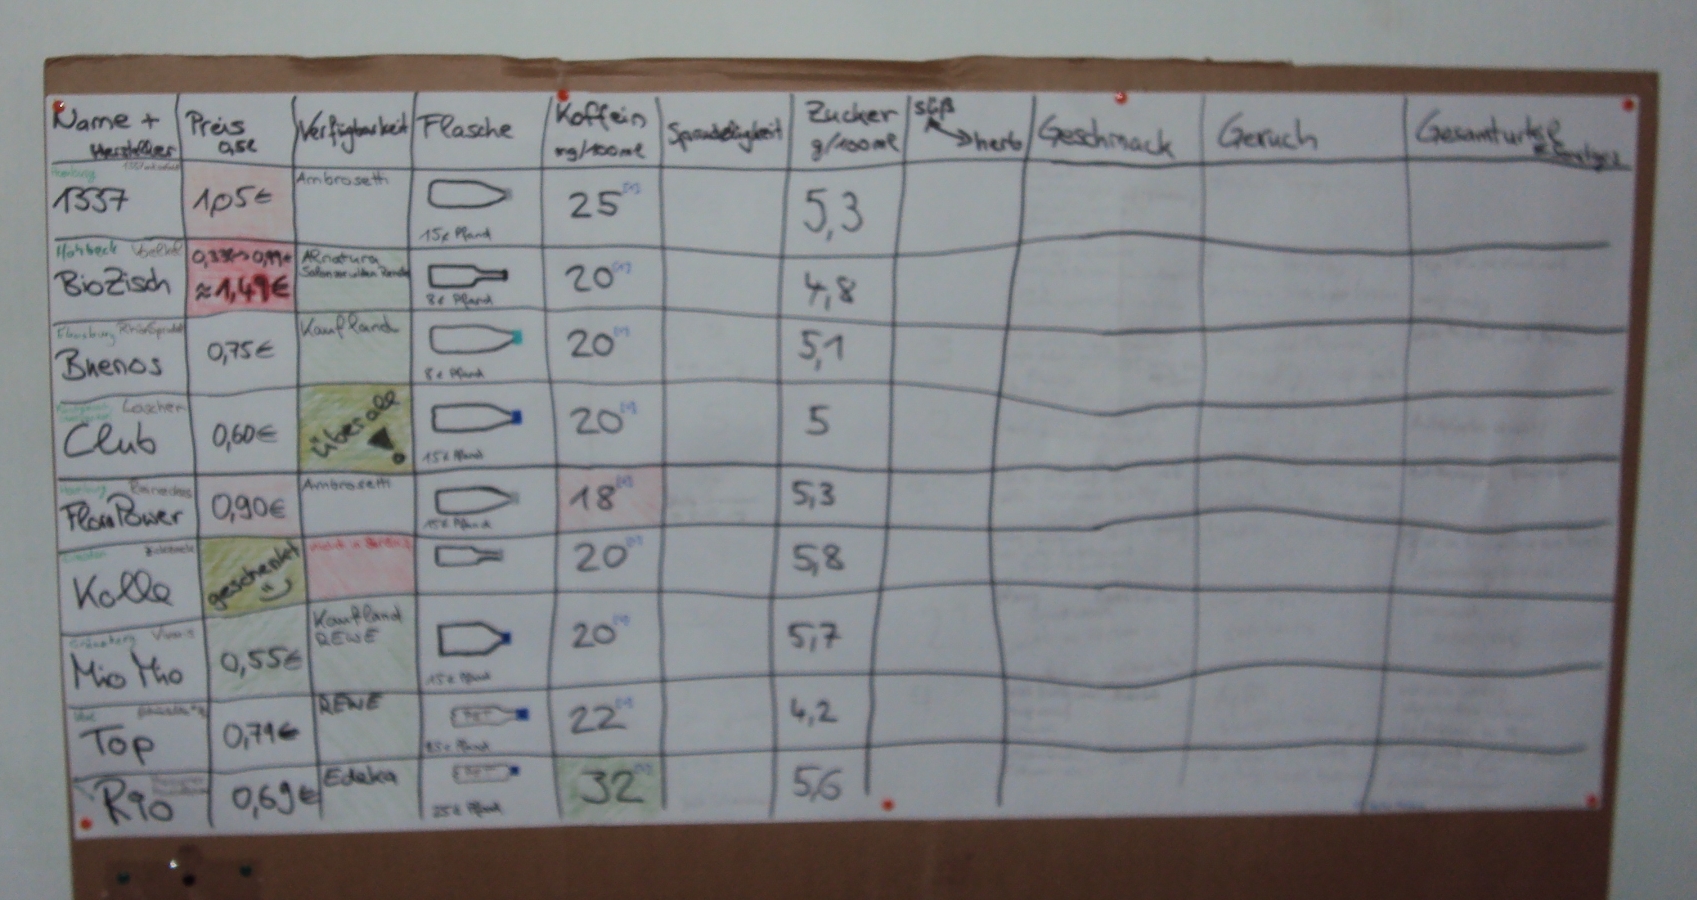 Name + Hersteller Preis 0,5l Verfügbarkeit Flasche Koffein mg/100ml Sprudeligkeit Zucker g/100ml süß herb Geschmack Geruch Gesamturteil
Hamburg
1337 1,05€ Ambrosetti 15c Pfand 25 5,3
Voelkel
BioZisch 0,33l → 0,99€ ≈1,49€ 8c Pfand 20 4,8
Buenos 0,75€ Kaufland 8c Pfand 20 5,1
Loscher
Club 0,60€ überall! 15c Pfand 20 5
Hamburg
FloraPower 0,90€ Ambrosetti 15c Pfand 18 5,3
Kolle geschenkt 20 5,8
Vivaris
Mio Mio 0,55€ Kaufland REWE 15c Pfand 20 5,7
Top 0,79€ REWE PET Pfand 22 4,2
Rio 0,69€ Edeka PET 25c Pfand 32 5,6